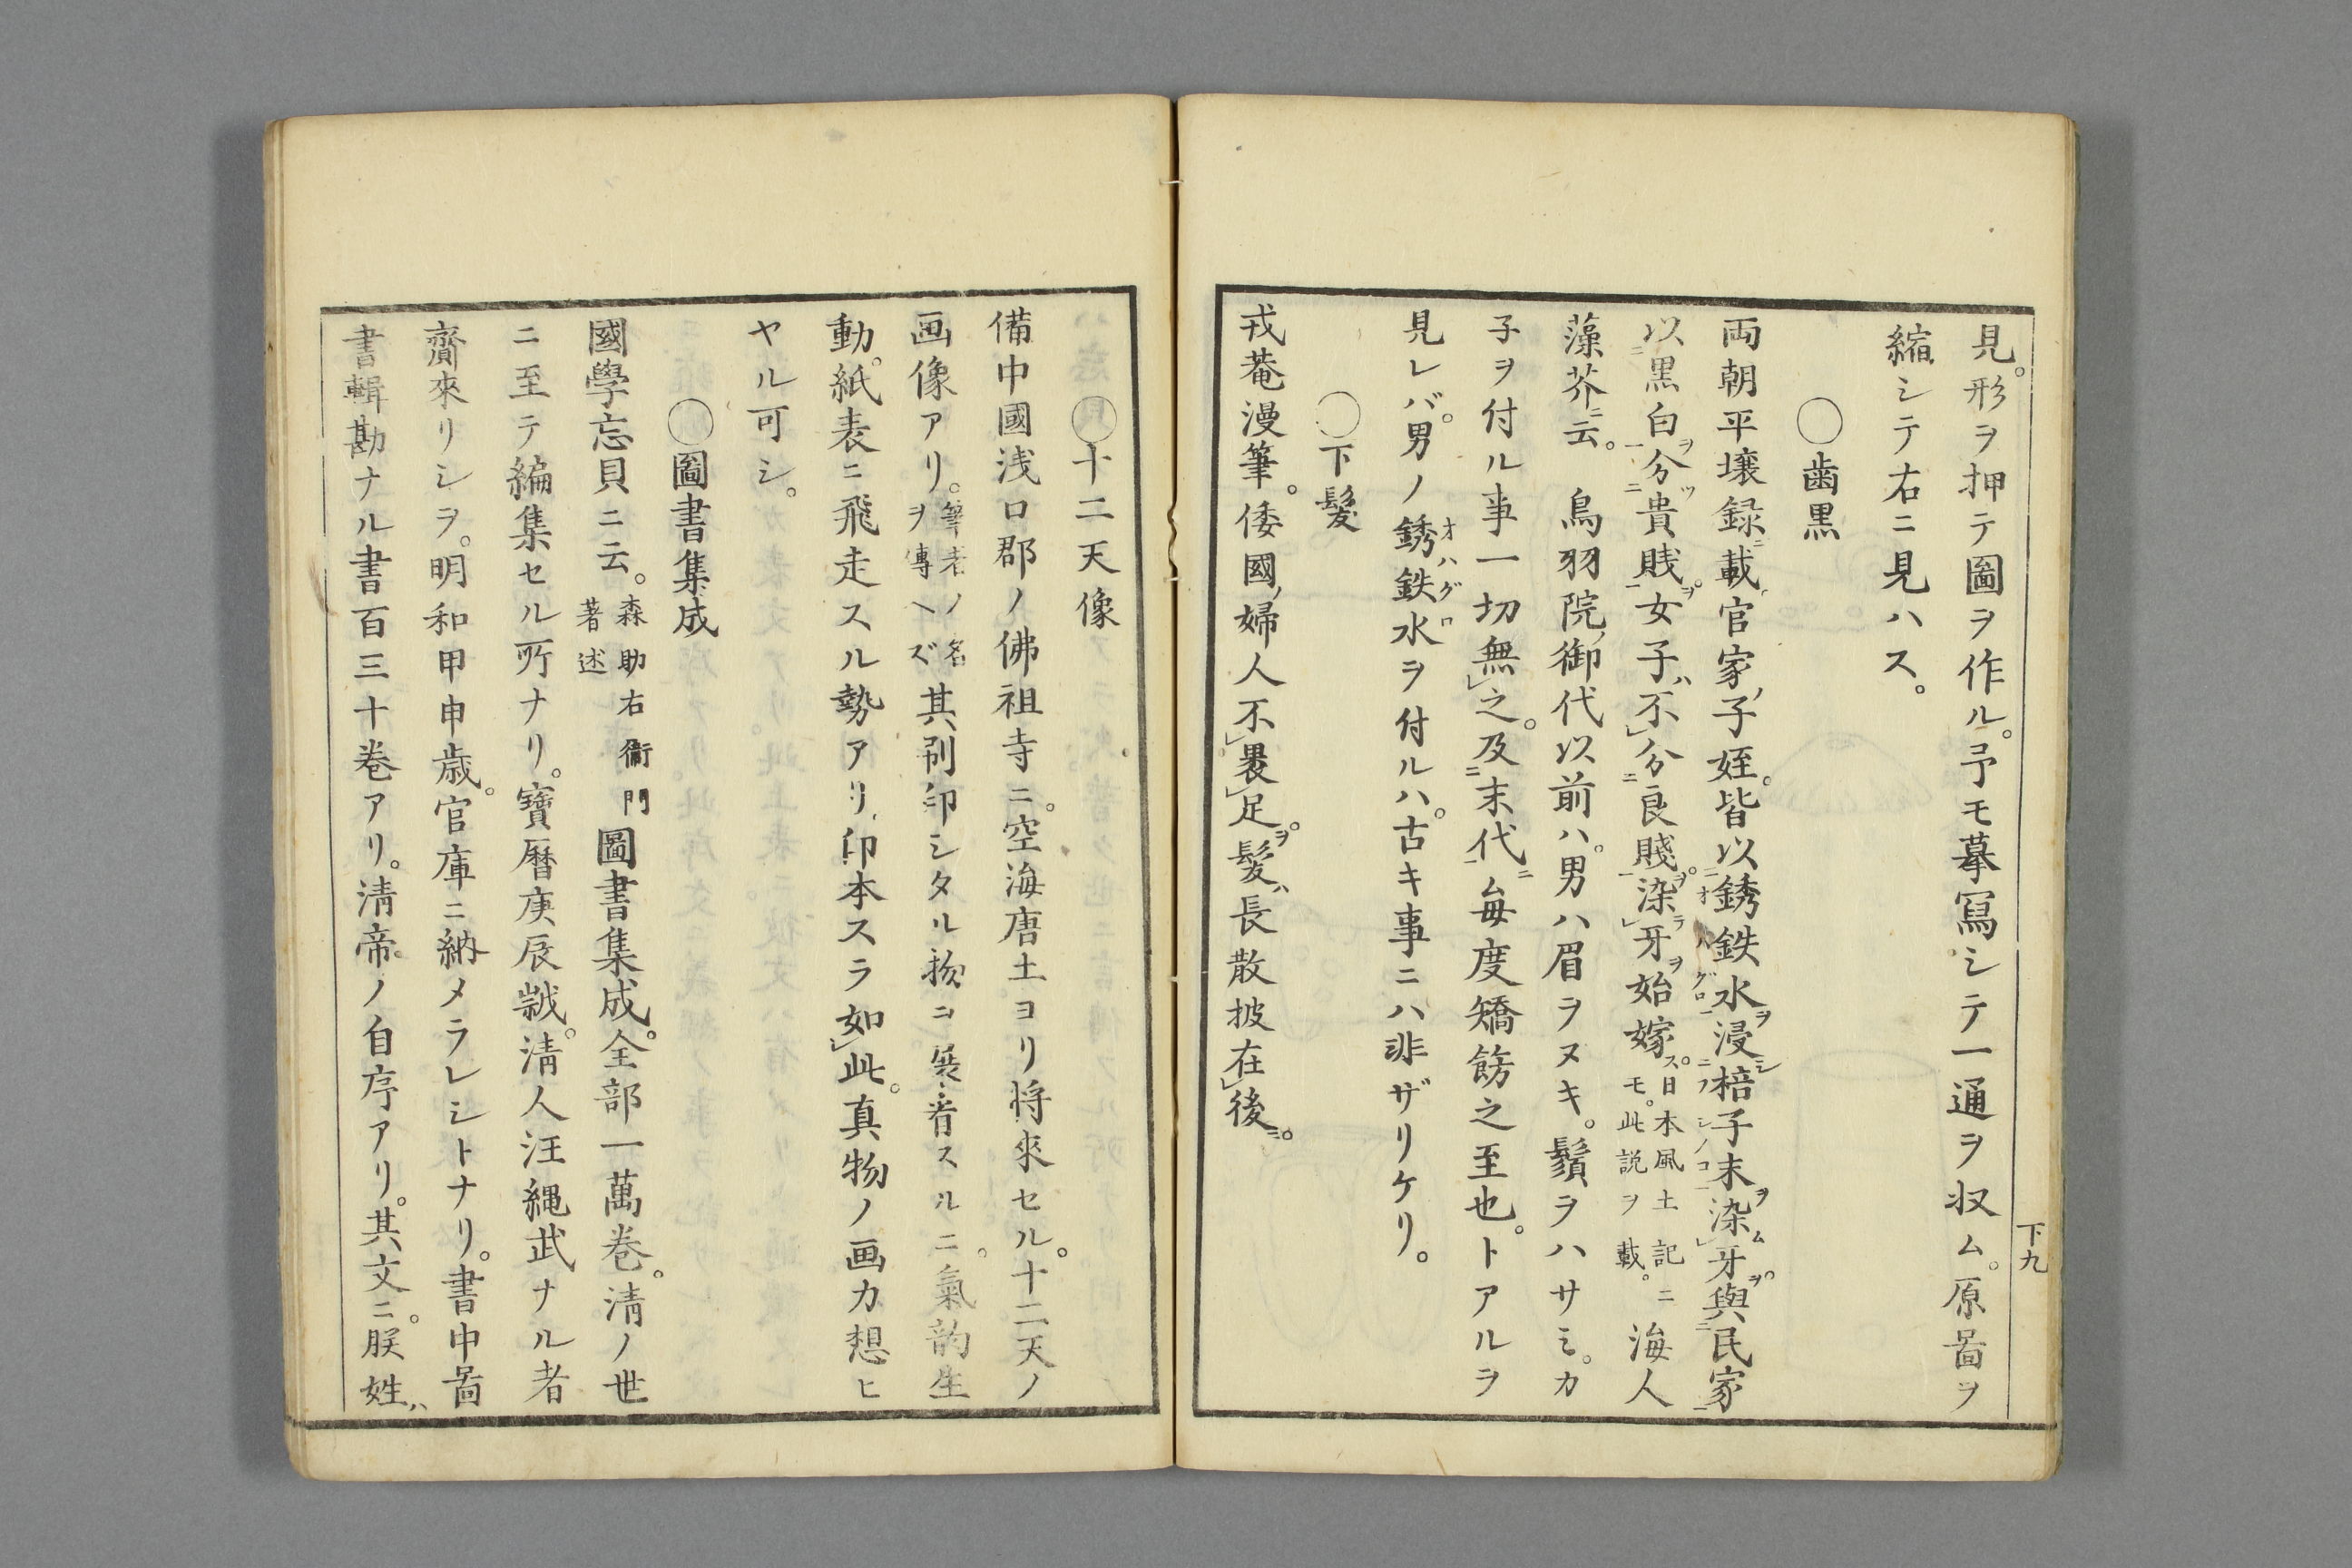 見。形ヲ押テ圖ヲ作ル。予モ摹寫シテ一通ヲ収ム。原啚ヲ
縮シテ右ニ見ハス。
〇歯黒
両朝平壌録ニ載。官家ノ子姪。皆以銹鉄水ヲ浸シ棓子末ヲ染ム牙ヲ。與民家
以黒白ヲ分ツ貴賎ヲ。女子ハ不分良賤ヲ。染ラ牙ヲ始嫁ス。日本風土記ニモ。此説ヲ載。海人
藻芥ニ云。鳥羽院ノ御代以前ハ。男ハ眉ヲヌキ。鬚ヲハサミ。カ
子ヲ付ル事一切無之。及末代ニ毎度矯餝之至也。トアルヲ
見レバ。男ノ銹鉄水ヲ付ルハ。古キ事ニハ非ザリケリ。
〇下髮
戎菴漫筆。倭國ノ婦人不裹足ヲ。髮ハ長散披在後ニ。
下九
〇十二天像
備中國浅口郡ノ佛祖寺ニ。空海唐土ヨリ将來セル。十二天ノ
画像アリ。筆者ノ名ヲ傳ヘズ其刷印シタル物ヲ展眘スルニ。氣韵生
動。紙表ニ飛走スル勢アリ。印本スラ如此。真物ノ画力想ヒ
ヤル可シ。
〇圖書集成
國學忘貝ニ云。森助右衞門著述圖書集成。全部一萬巻。淸ノ世
ニ至テ編集セル所ナリ。寶曆庚辰歳。淸人汪縄武ナル者
齎來リシヲ。明和甲申歳。官庫ニ納メラレシトナリ。書中啚
書輯勘ナル書百三十巻アリ。淸帝ノ自序アリ。其文ニ。朕姓ハ